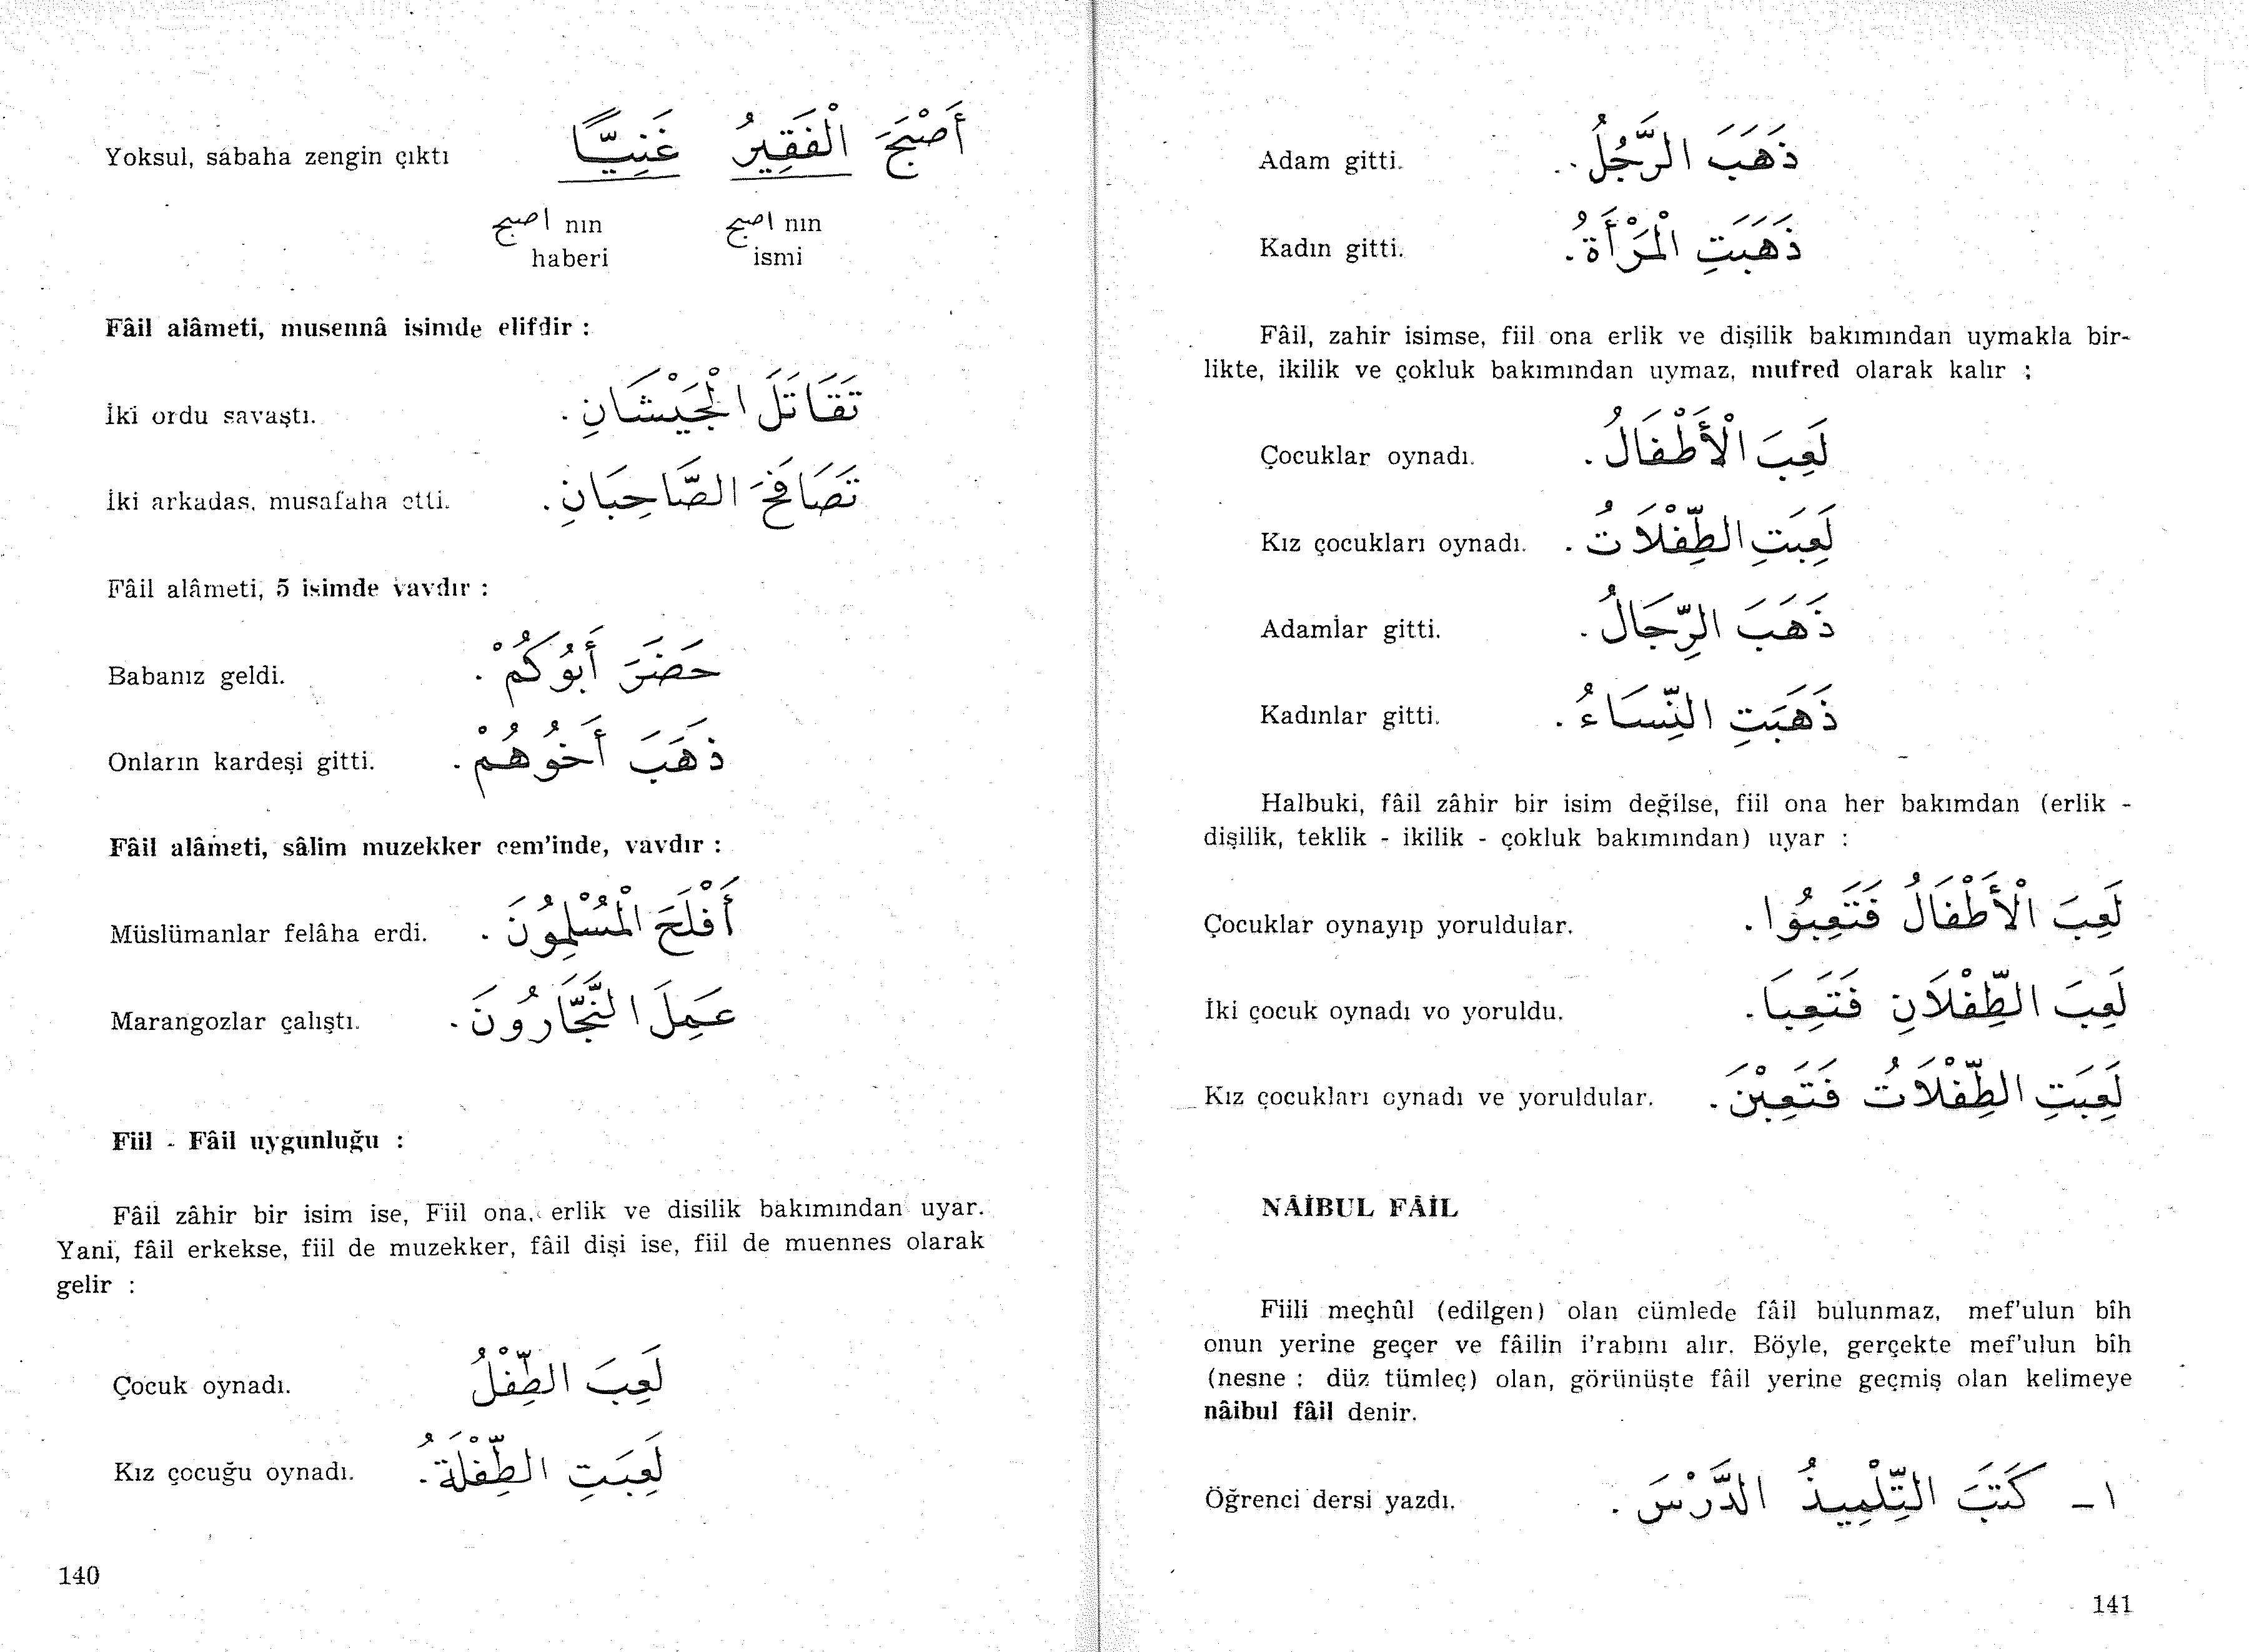 Yoksul, sabaha zengin çıktı أَصْبَحَ الْفَقِيرُ غَنِيًّا
اصبح nın اصبح nın
haberi ismi
Fâil alâmeti, musennâ isimde elifdir :
İki ordu savaştı. تَقَاتَلَ الْجَيْشَانِ .
İki arkadas, musafaha etti. تَصَافَحَ الصَّاحِبَانِ .
Fâil alâmeti, 5 isimde vavdır :
Babanız geldi. حَضَرَ أَبُوكُمْ .
Onların kardeşi gitti. ذَهَبَ أَخُوهُمْ .
Fâil alâmeti, sâlim muzekker cem'inde, vavdır :
Müslümanlar felâha erdi. أَفْلَحَ الْمُسْلِمُونَ .
Marangozlar çalıştı. عَمِلَ النَّجَّارُونَ .
Fiil - Fâil uygunluğu :
Fâil zâhir bir isim ise, Fiil ona, erlik ve disilik bakımından uyar.
Yani, fâil erkekse, fiil de muzekker, fâil dişi ise, fiil de muennes olarak
gelir :
Çocuk oynadı. لَعِبَ الطِّفْلُ
Kız çocuğu oynadı. لَعِبَتِ الطِّفْلَةُ .
140
Adam gitti. ذَهَبَ الرَّجُلُ .
Kadın gitti. ذَهَبَتِ الْمَرْأَةُ .
Fâil, zahir isimse, fiil ona erlik ve dişilik bakımından uymakla bir-
likte, ikilik ve çokluk bakımından uymaz, mufred olarak kalır ;
Çocuklar oynadı. لَعِبَ الْأَطْفَالُ .
Kız çocukları oynadı. لَعِبَتِ الطِّفْلَاتُ .
Adamlar gitti. ذَهَبَ الرِّجَالُ .
Kadınlar gitti. ذَهَبَتِ النِّسَاءُ .
Halbuki, fâil zâhir bir isim değilse, fiil ona her bakımdan (erlik -
dişilik, teklik - ikilik - çokluk bakımından) uyar :
Çocuklar oynayıp yoruldular. لَعِبَ الْأَطْفَالُ فَتَعِبُوا .
İki çocuk oynadı vo yoruldu. لَعِبَ الطِّفْلَانِ فَتَعِبَا .
Kız çocukları oynadı ve yoruldular. لَعِبَتِ الطِّفْلَاتُ فَتَعِبْنَ .
NÂİBUL FÂİL
Fiili meçhûl (edilgen) olan cümlede fâil bulunmaz, mef'ulun bîh
onun yerine geçer ve fâilin i'rabını alır. Böyle, gerçekte mef'ulun bîh
(nesne : düz tümleç) olan, görünüşte fâil yerine geçmiş olan kelimeye
nâibul fâil denir.
Öğrenci dersi yazdı. ١ - كَتَبَ التِّلْمِيذُ الدَّرْسَ .
141